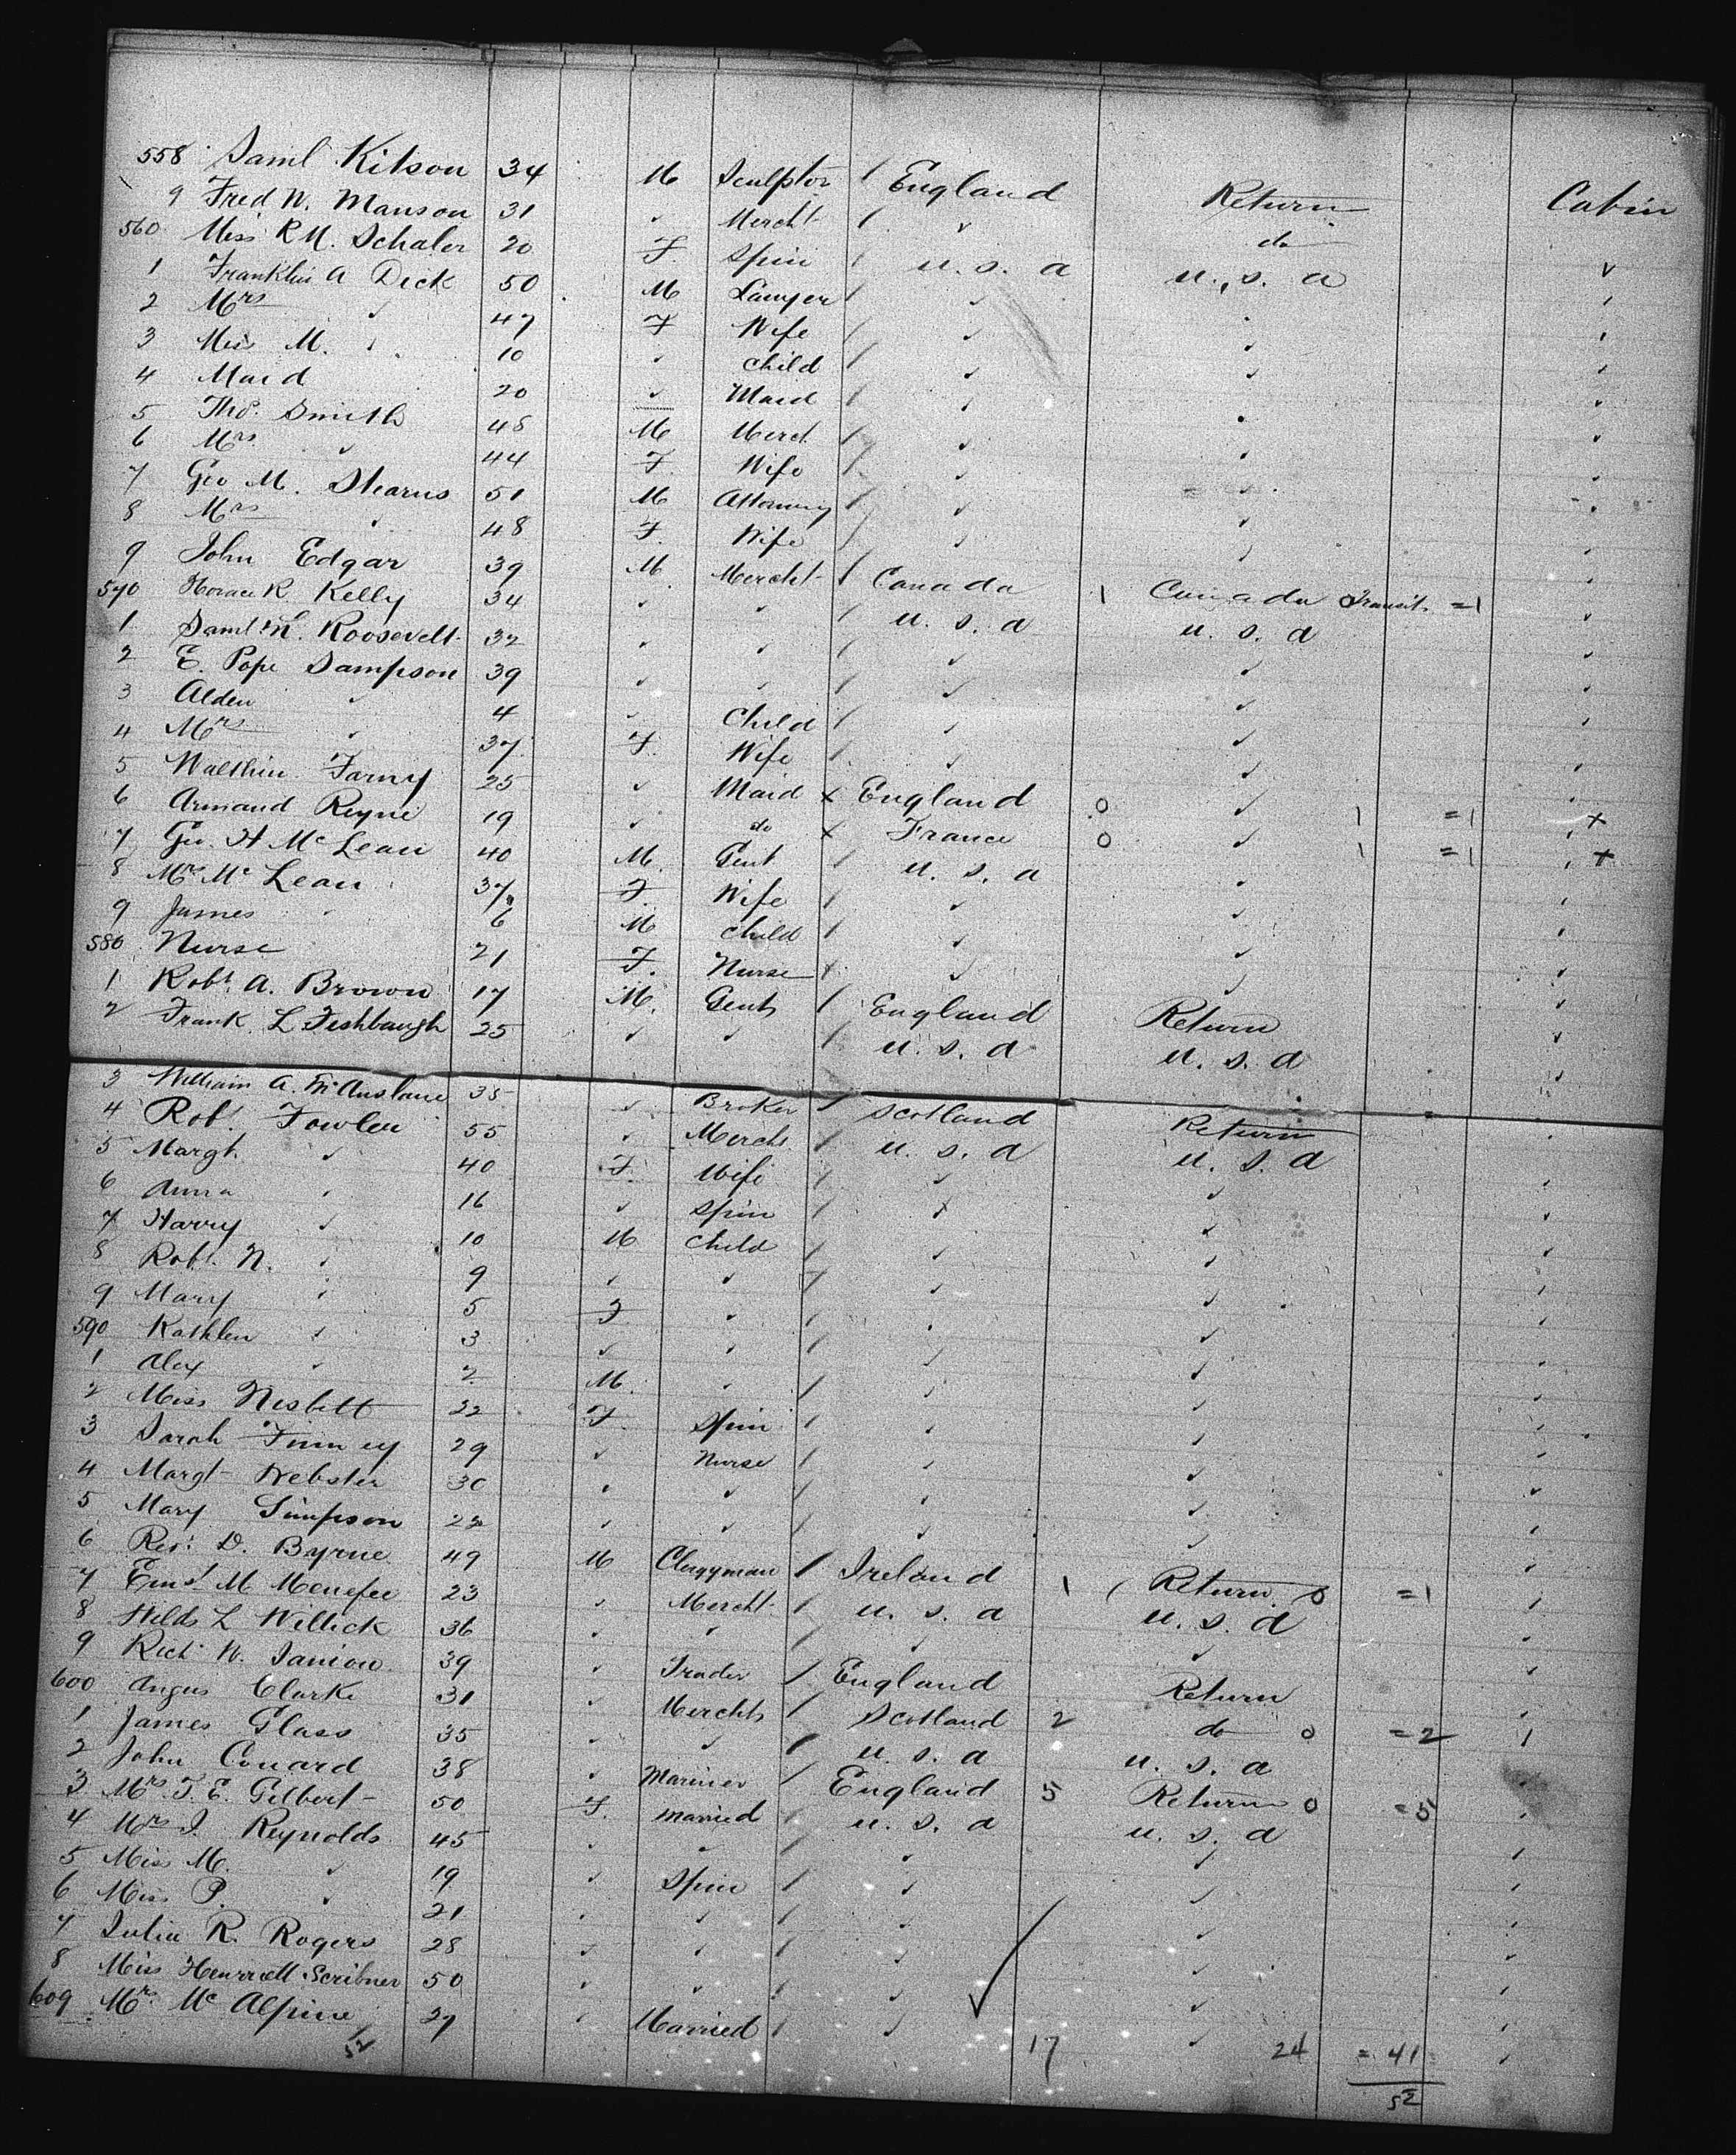 558 Saml Kitson 34 M Sculptor / England Return Cabin
9 Fred W. Manson 31 ✓ Mercht / ✓ do
560 Miss R M. Schaler 20 F. Spin / U. S. A U. S. A
1 Franklin A Dick 50 M Lawyer / ✓
2 Mrs ✓ 47 F Wife / ✓ ✓
3 Miss M. 10 ✓ Child / ✓ ✓
4 Maid 20 ✓ Maid / ✓
5 Tho. Smith 48 M Merct / ✓
6 Mrs. ✓ 44 F. Wife / ✓ ✓
7 Geo M. Stearns 51 M Attorney / ✓ ✓
8 Mrs ✓ 48 F. Wife / ✓ ✓
9 John Edgar 39 M Mercht / Canada 1 Canada Transit =1
570 Horace R. Kelly 34 ✓ ✓ / U. S. A U. S. A
1 Saml. M. Roosevelt 32 ✓ ✓ / ✓ ✓
2 E. Pope Sampson 39 ✓ ✓ / ✓ ✓
3 Alden ✓ 4 ✓ Child / ✓ ✓
4 Mrs ✓ 37 F. Wife / ✓ ✓
5 Farny 25 ✓ Maid x England 0 ✓ 1 =1 x
6 Armand Reyne 19 ✓ do x France 0 ✓ 1 =1 x
7 Geo. H McLean 40 M. Gent / U. S. A
8 Mrs Mc Lean 37 F. Wife / ✓
9 James 6 M Child / ✓ ✓
580 Nurse 21 F. Nurse / ✓ ✓
1 Robt. A. Brown 17 M. Gents / England Return
2 Frank L Fishbaugh 25 ✓ ✓ / U. S. A U. S. A
3 William A. McAuslane 35 ✓ Broker / Scotland Return
4 Robt. Fowler 55 ✓ Mercht / U. S. A U. S. A
5 Margt. ✓ 40 F. Wife / ✓ ✓
6 Anna 16 ✓ Spin / ✓ ✓
7 Harry ✓ 10 M Child / ✓ ✓
8 Robt. N. ✓ 9 ✓ ✓ / ✓ ✓
9 Mary 5 F ✓ / ✓
590 Kathlen ✓ 3 ✓ ✓ / ✓ ✓
1 Alex ✓ 2 M. ✓ / ✓ ✓
2 Miss Nesbitt 22 F. Spin / ✓ ✓
3 Sarah Finney 29 ✓ Nurse / ✓ ✓
4 Margt Webster 30 ✓ ✓ / ✓ ✓
5 Mary Simpson 22 ✓ ✓ / ✓ ✓
6 Rev. D. Byrne 49 M Clergyman / Ireland 1 ( Return 0 =1
7 Ernst M Menefee 23 ✓ Mercht. / U. S. A U. S. A
8 L Willick 36 ✓ ✓ / ✓ ✓
9 Richd W. Janion 39 ✓ Trader / England Return
600 Angus Clarke 31 ✓ Merchts / Scotland 2 do 0 =2
1 James Glass 35 ✓ ✓ / U. S. A U. S. A
2 John Conard 38 ✓ Mariner / England 5 Return 0 =5
3 Mrs. T. E. Gilbert 50 F. Married / U. S. A U. S. A
4 Mrs J. Reynolds 45 ✓ ✓ / ✓ ✓
5 Miss M. ✓ 19 ✓ Spin / ✓ ✓
6 Miss P. ✓ 21 ✓ ✓ / ✓ ✓
7 Julia R. Rogers 28 ✓ ✓ / ✓ ✓
8 Miss Scribner 50 ✓ ✓ / ✓ ✓
609 Mrs. Mc Alpine 27 ✓ Married / ✓ ✓
52 17 24 = 41
52